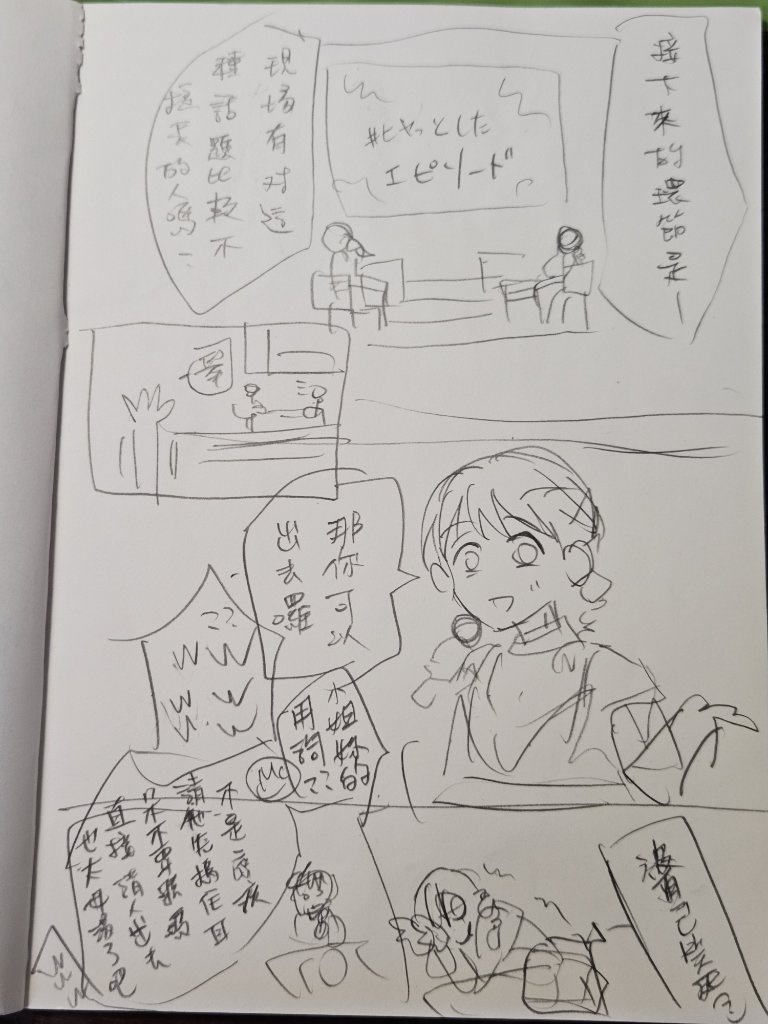 接下來的環節是—
#ヒヤッとした
エピソード
現場有对這
種話題比較不
擅長的人嗎—
那你可以
出去囉
??
WW
WW
WW
小姐妳的
用詞??
MC
不是應該
請他先摀住耳
朵不要聽嗎
直接請人出去
也太母湯了吧
WWW
被自己笑死(?)